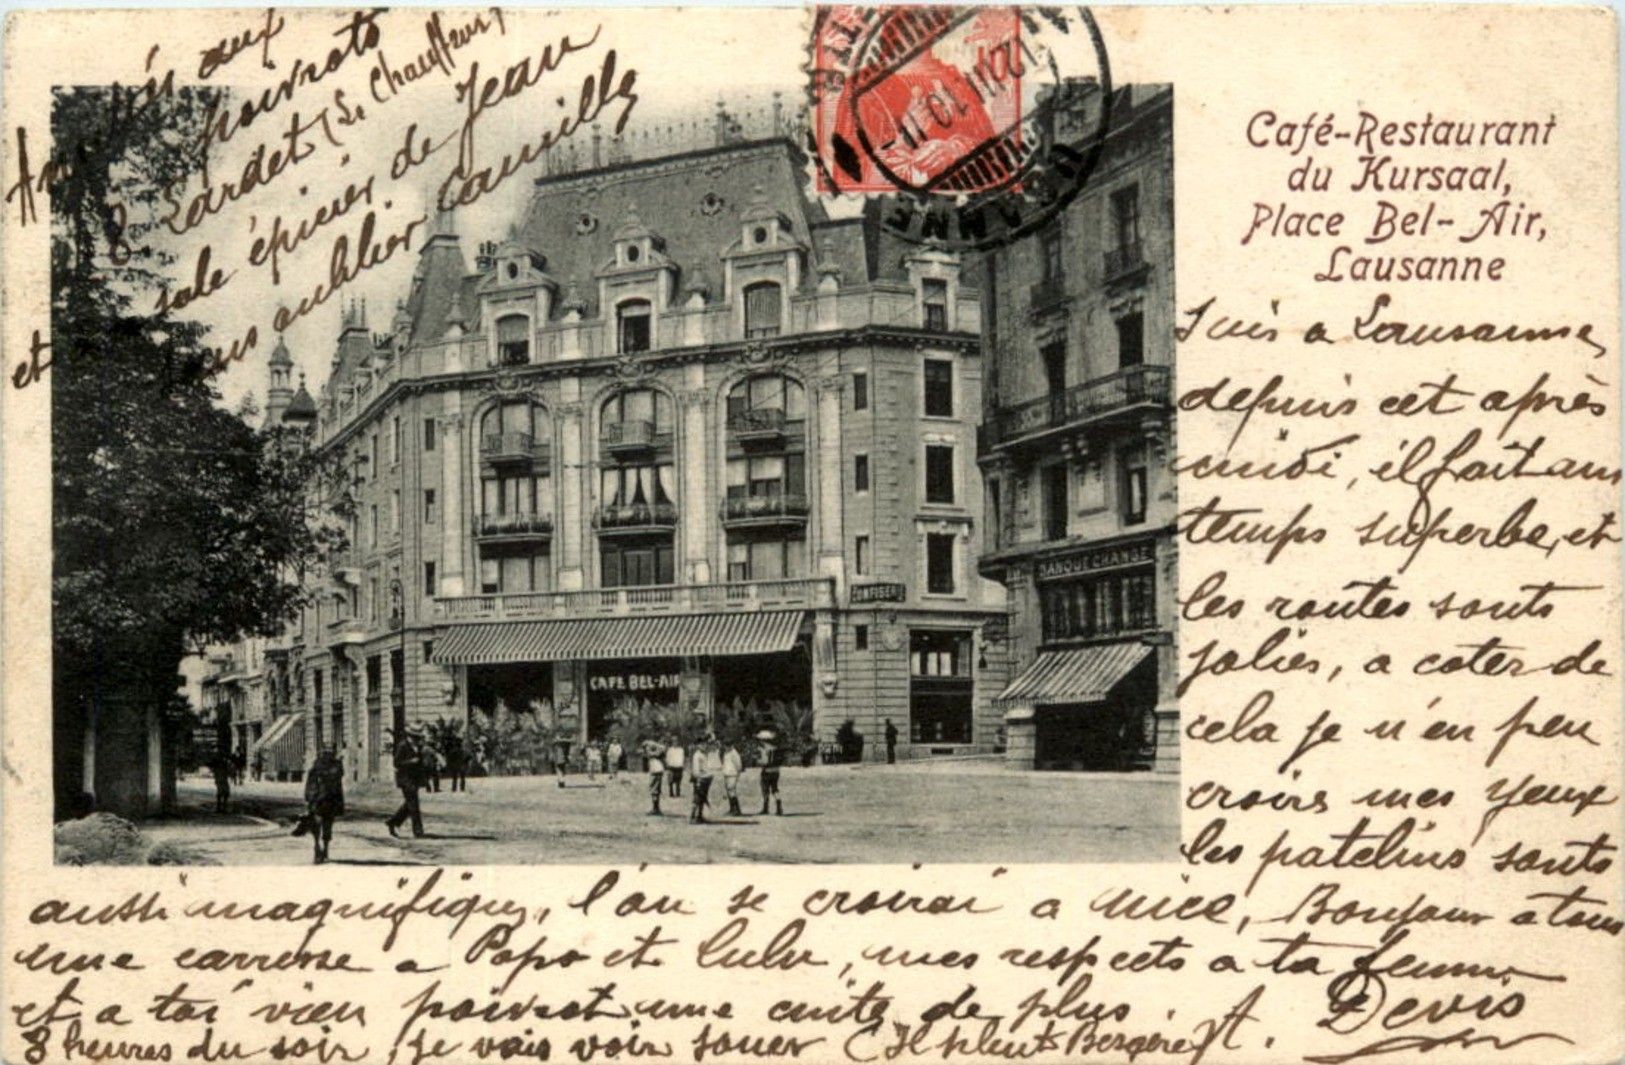 Amitiés aux
poivrots
E. Lardet (Le Chauffeur)
sale épicier de Jean
et sans oublier Camille
LAUSANNE
12 III 10 11-
Café-Restaurant
du Kursaal,
Place Bel-Air,
Lausanne
BANQUE CHANGE
CONFISERIE
CAFE BEL-AIR
suis a Lausanne,
depuis cet après
midi, il fait un
temps superbe, et
les routes sonts
jolies, a coter de
cela je n'en peu
croire mes yeux
les patelins sonts
aussi magnifique, l'on se croirai a Nice, Bonjour a tous
une carresse a Popo et Lulu, mes respects a ta femme
et a toi vieu poivrot une cuite de plus.
8 heures du soir, je vais voir jouer
A. Devis